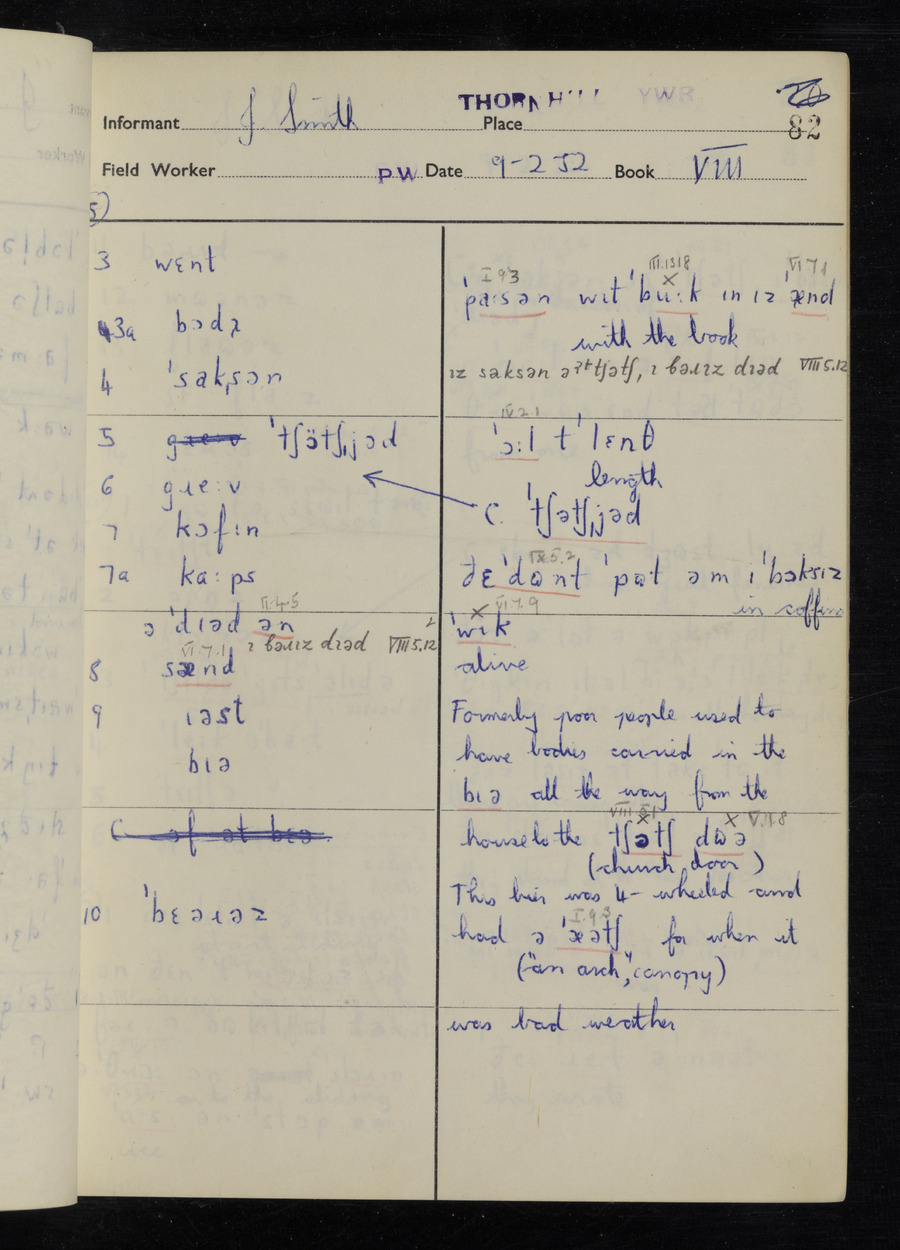 THORNHILL YWR
Informant J. Smith Place 82
Field Worker PW Date 9-2 52 Book VIII
5)
3 wɛnt
3a bɔdɪ
4 ˈsakˌsən
5 ˈtʃɵ̈tʃˌjəd
6 gɹeːv
7 kɔfɪn
7a kaːps
ə ˈdɪəd ən VI.4.5
ɪ bəɹɪz dɪəd VIII 5.12
8 sænd VI.7.1
9 ɪəst
bɪə
C əf ət bɪə
10 ˈbɛəɹəz
I 9 3 III.13 18 VI 7 1
ˈpaːsən wɪt ˈbuːk ɪn ɪz ænd
with the book
ɪz saksən əʔt tʃətʃ, ɪ bəɹɪz dɪəd VIII 5.12
IV 2.1
ˈɔːl tˈ lɛnθ
length
C. ˈtʃətʃˌjəd
IX 5.2
ðɛ ˈdɷnt ˈpɷt əm ɪ ˈbɔksɪz
in coffins
× VI 7.9
ˈwɪk
alive
Formerly poor people used to
have bodies carried in the
bɪə all the way from the
× V.1.8
house to the tʃətʃ dɷə
(church door)
This bier was 4-wheeled and
I.9.3
had ə ˈæətʃ for when it
("an arch", canopy)
was bad weather